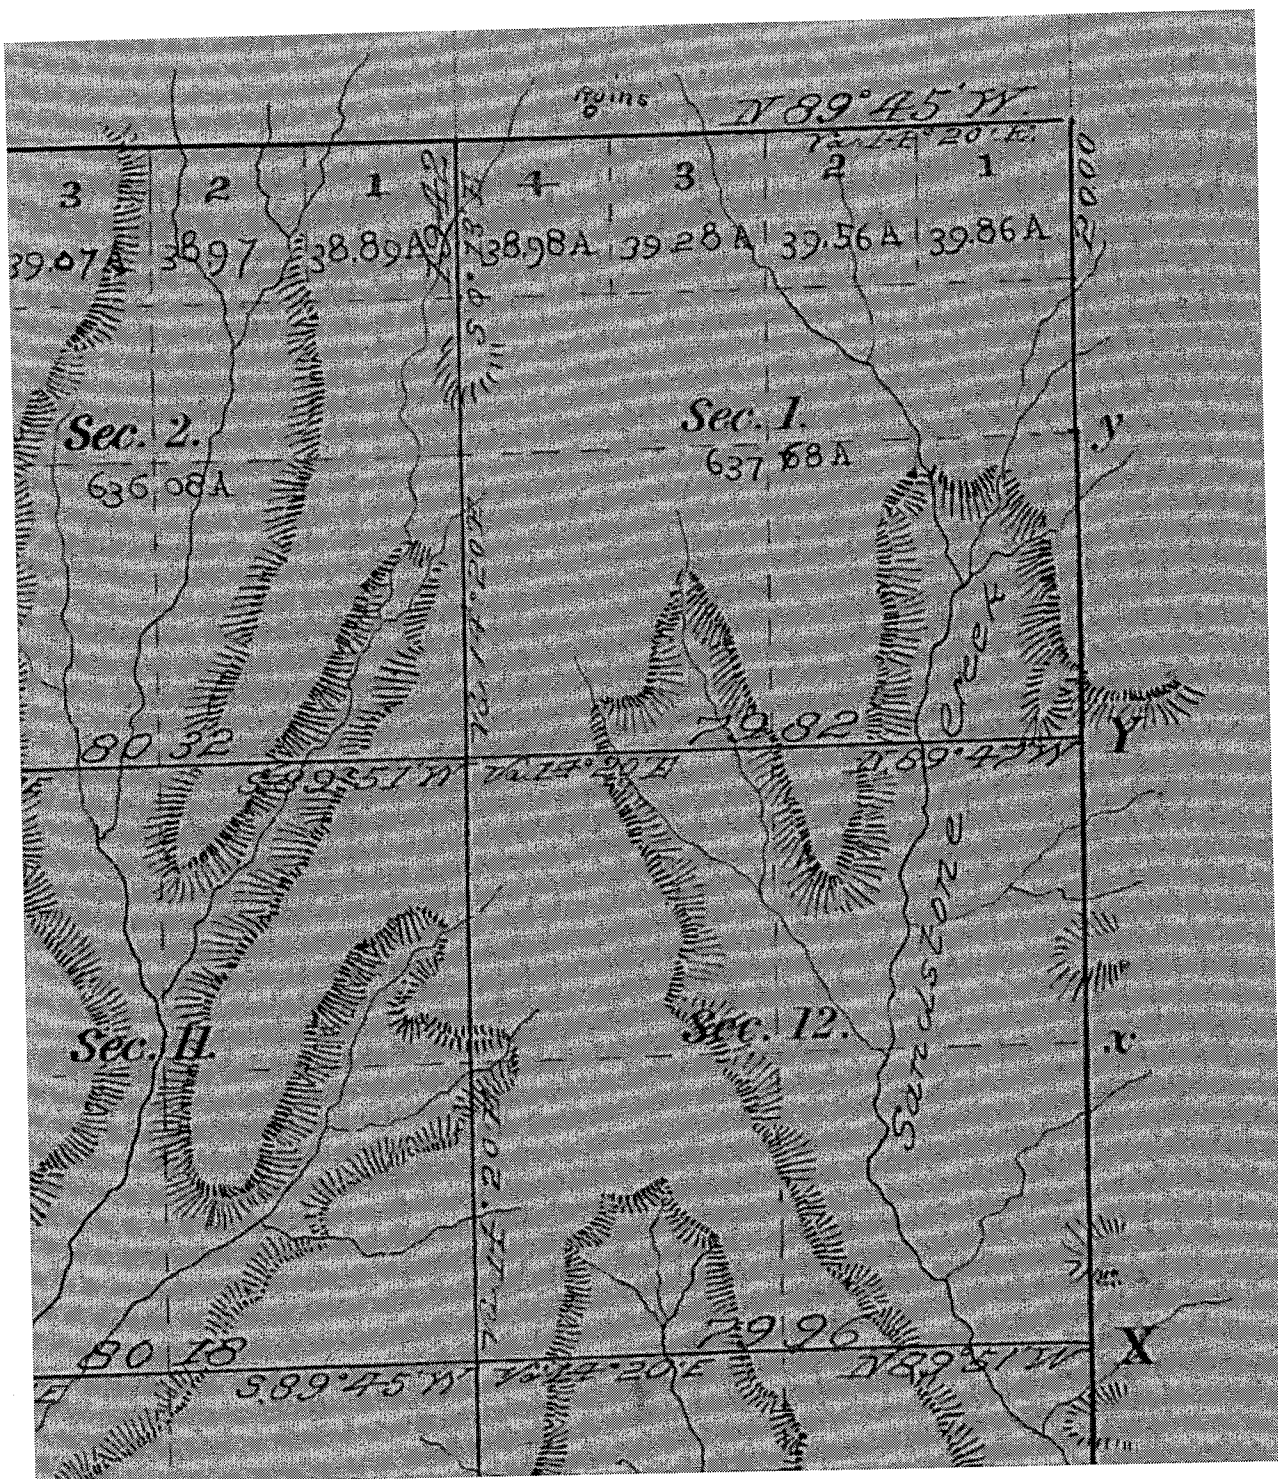 Ruins
N 89° 45' W.
Va. 14° 20' E.
3 2 1 4 3 2 1
39.07A 38.97 38.89A 38.98A 39.28A 39.56A 39.86A
Sec. 2.
636.08A
Sec. 1.
637.68A
y
Va. 14° 20' E.
Creek
80 32
79 82
Y
S. 89° 51' W
Va. 14° 20' E
N 89° 43' W
Sec. 11.
Sec. 12.
x
Va. 14° 20' E.
80 18
79 96
X
S. 89° 45' W
Va. 14° 20' E
N 89° 51' W